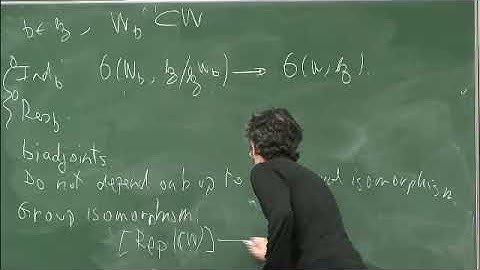 b ∈ 𝔥, W_b ⊂ W
Ind_b O(W_b, 𝔥/𝔥^{W_b}) → O(W, 𝔥).
Res_b
biadjoints
Do not depend on b up to isomorphism
Group isomorphism
[Rep ℂW] →